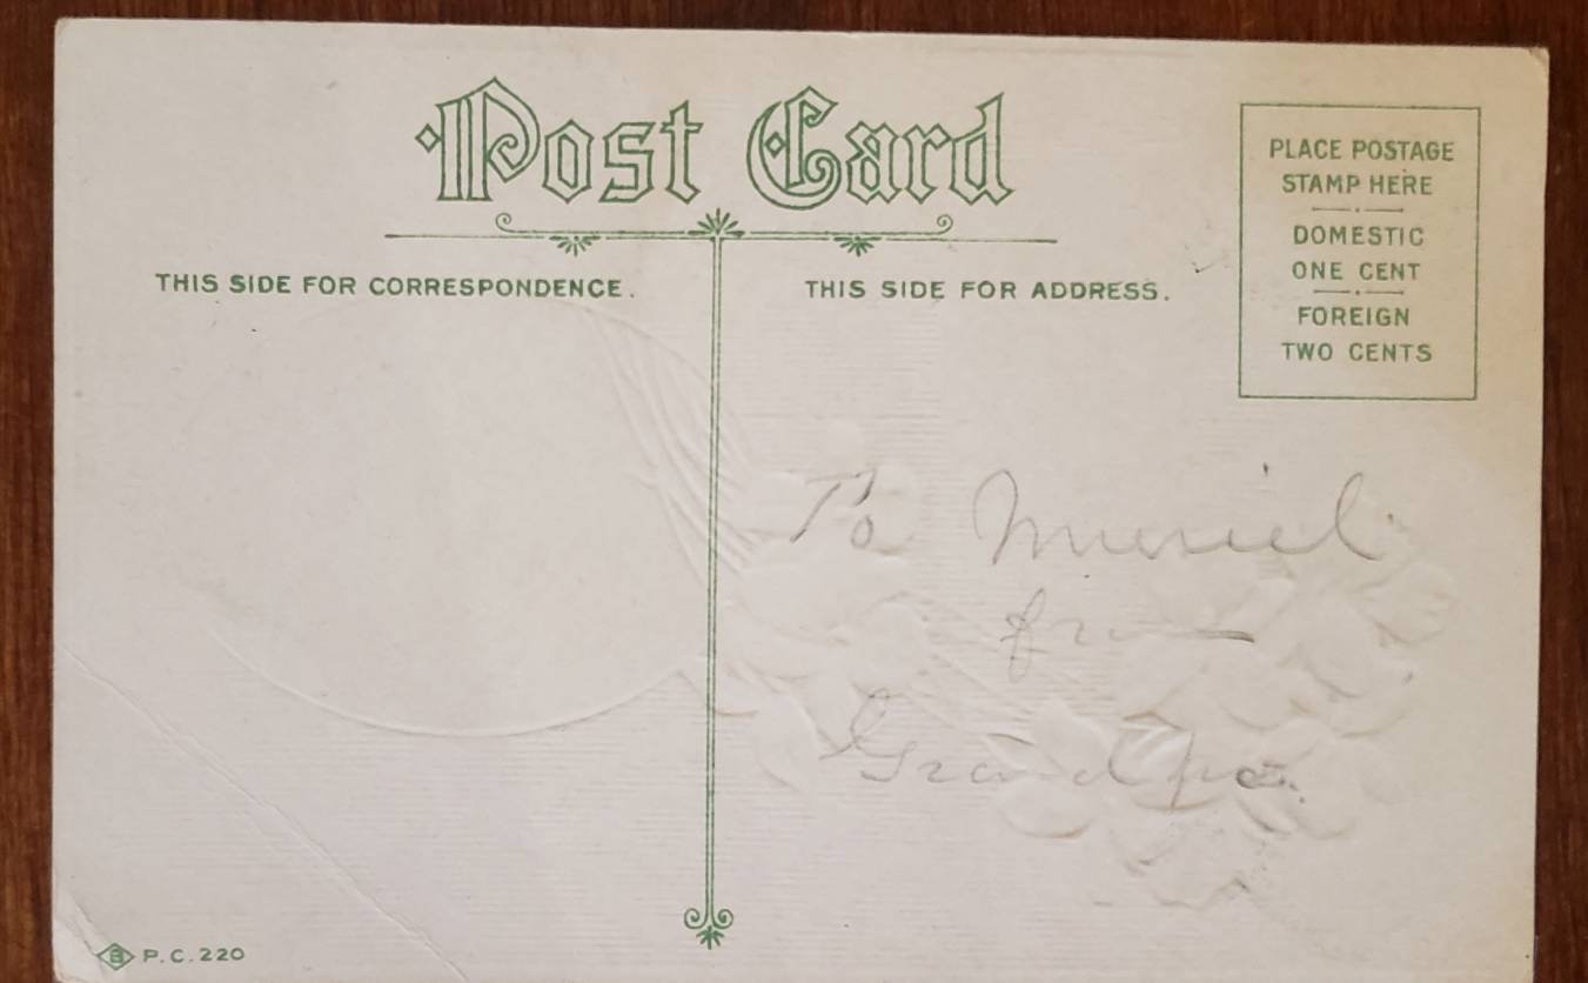 Post Card
THIS SIDE FOR CORRESPONDENCE.
THIS SIDE FOR ADDRESS.
PLACE POSTAGE
STAMP HERE
DOMESTIC
ONE CENT
FOREIGN
TWO CENTS
To Muriel
from
Grandpa.
B P.C. 220